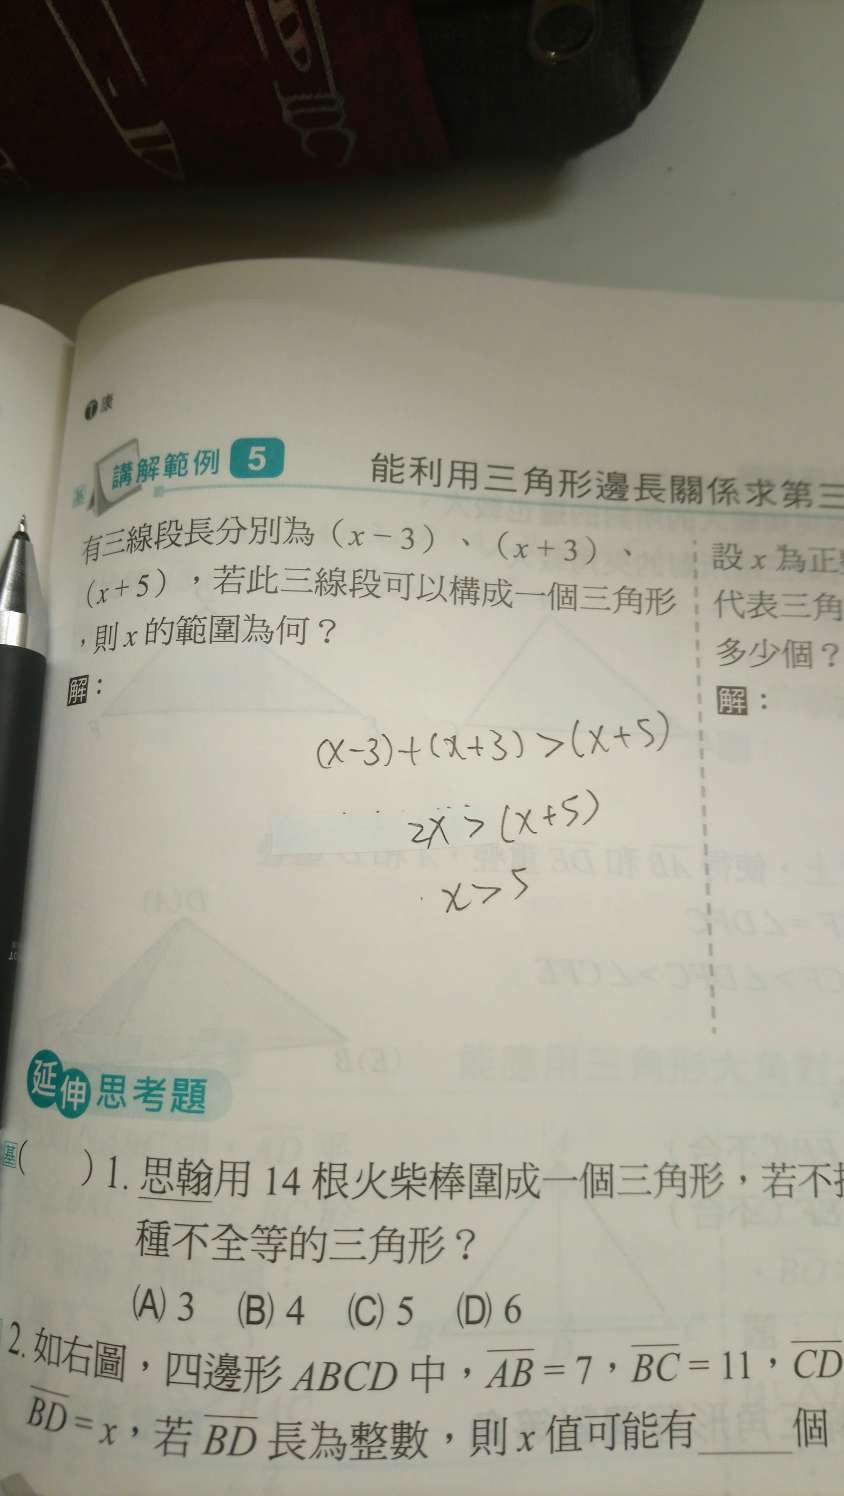 康
講解範例 5 能利用三角形邊長關係求第三
有三線段長分別為（x－3）、（x＋3）、
（x＋5），若此三線段可以構成一個三角形
，則 x 的範圍為何？
解：
(x-3)+(x+3)>(x+5)
2x>(x+5)
x>5
設 x 為正
代表三角
多少個？
解：
延伸思考題
基( ) 1. 思翰用 14 根火柴棒圍成一個三角形，若不
種不全等的三角形？
(A) 3 (B) 4 (C) 5 (D) 6
2. 如右圖，四邊形 ABCD 中，AB = 7，BC = 11，CD
BD = x，若 BD 長為整數，則 x 值可能有_____個